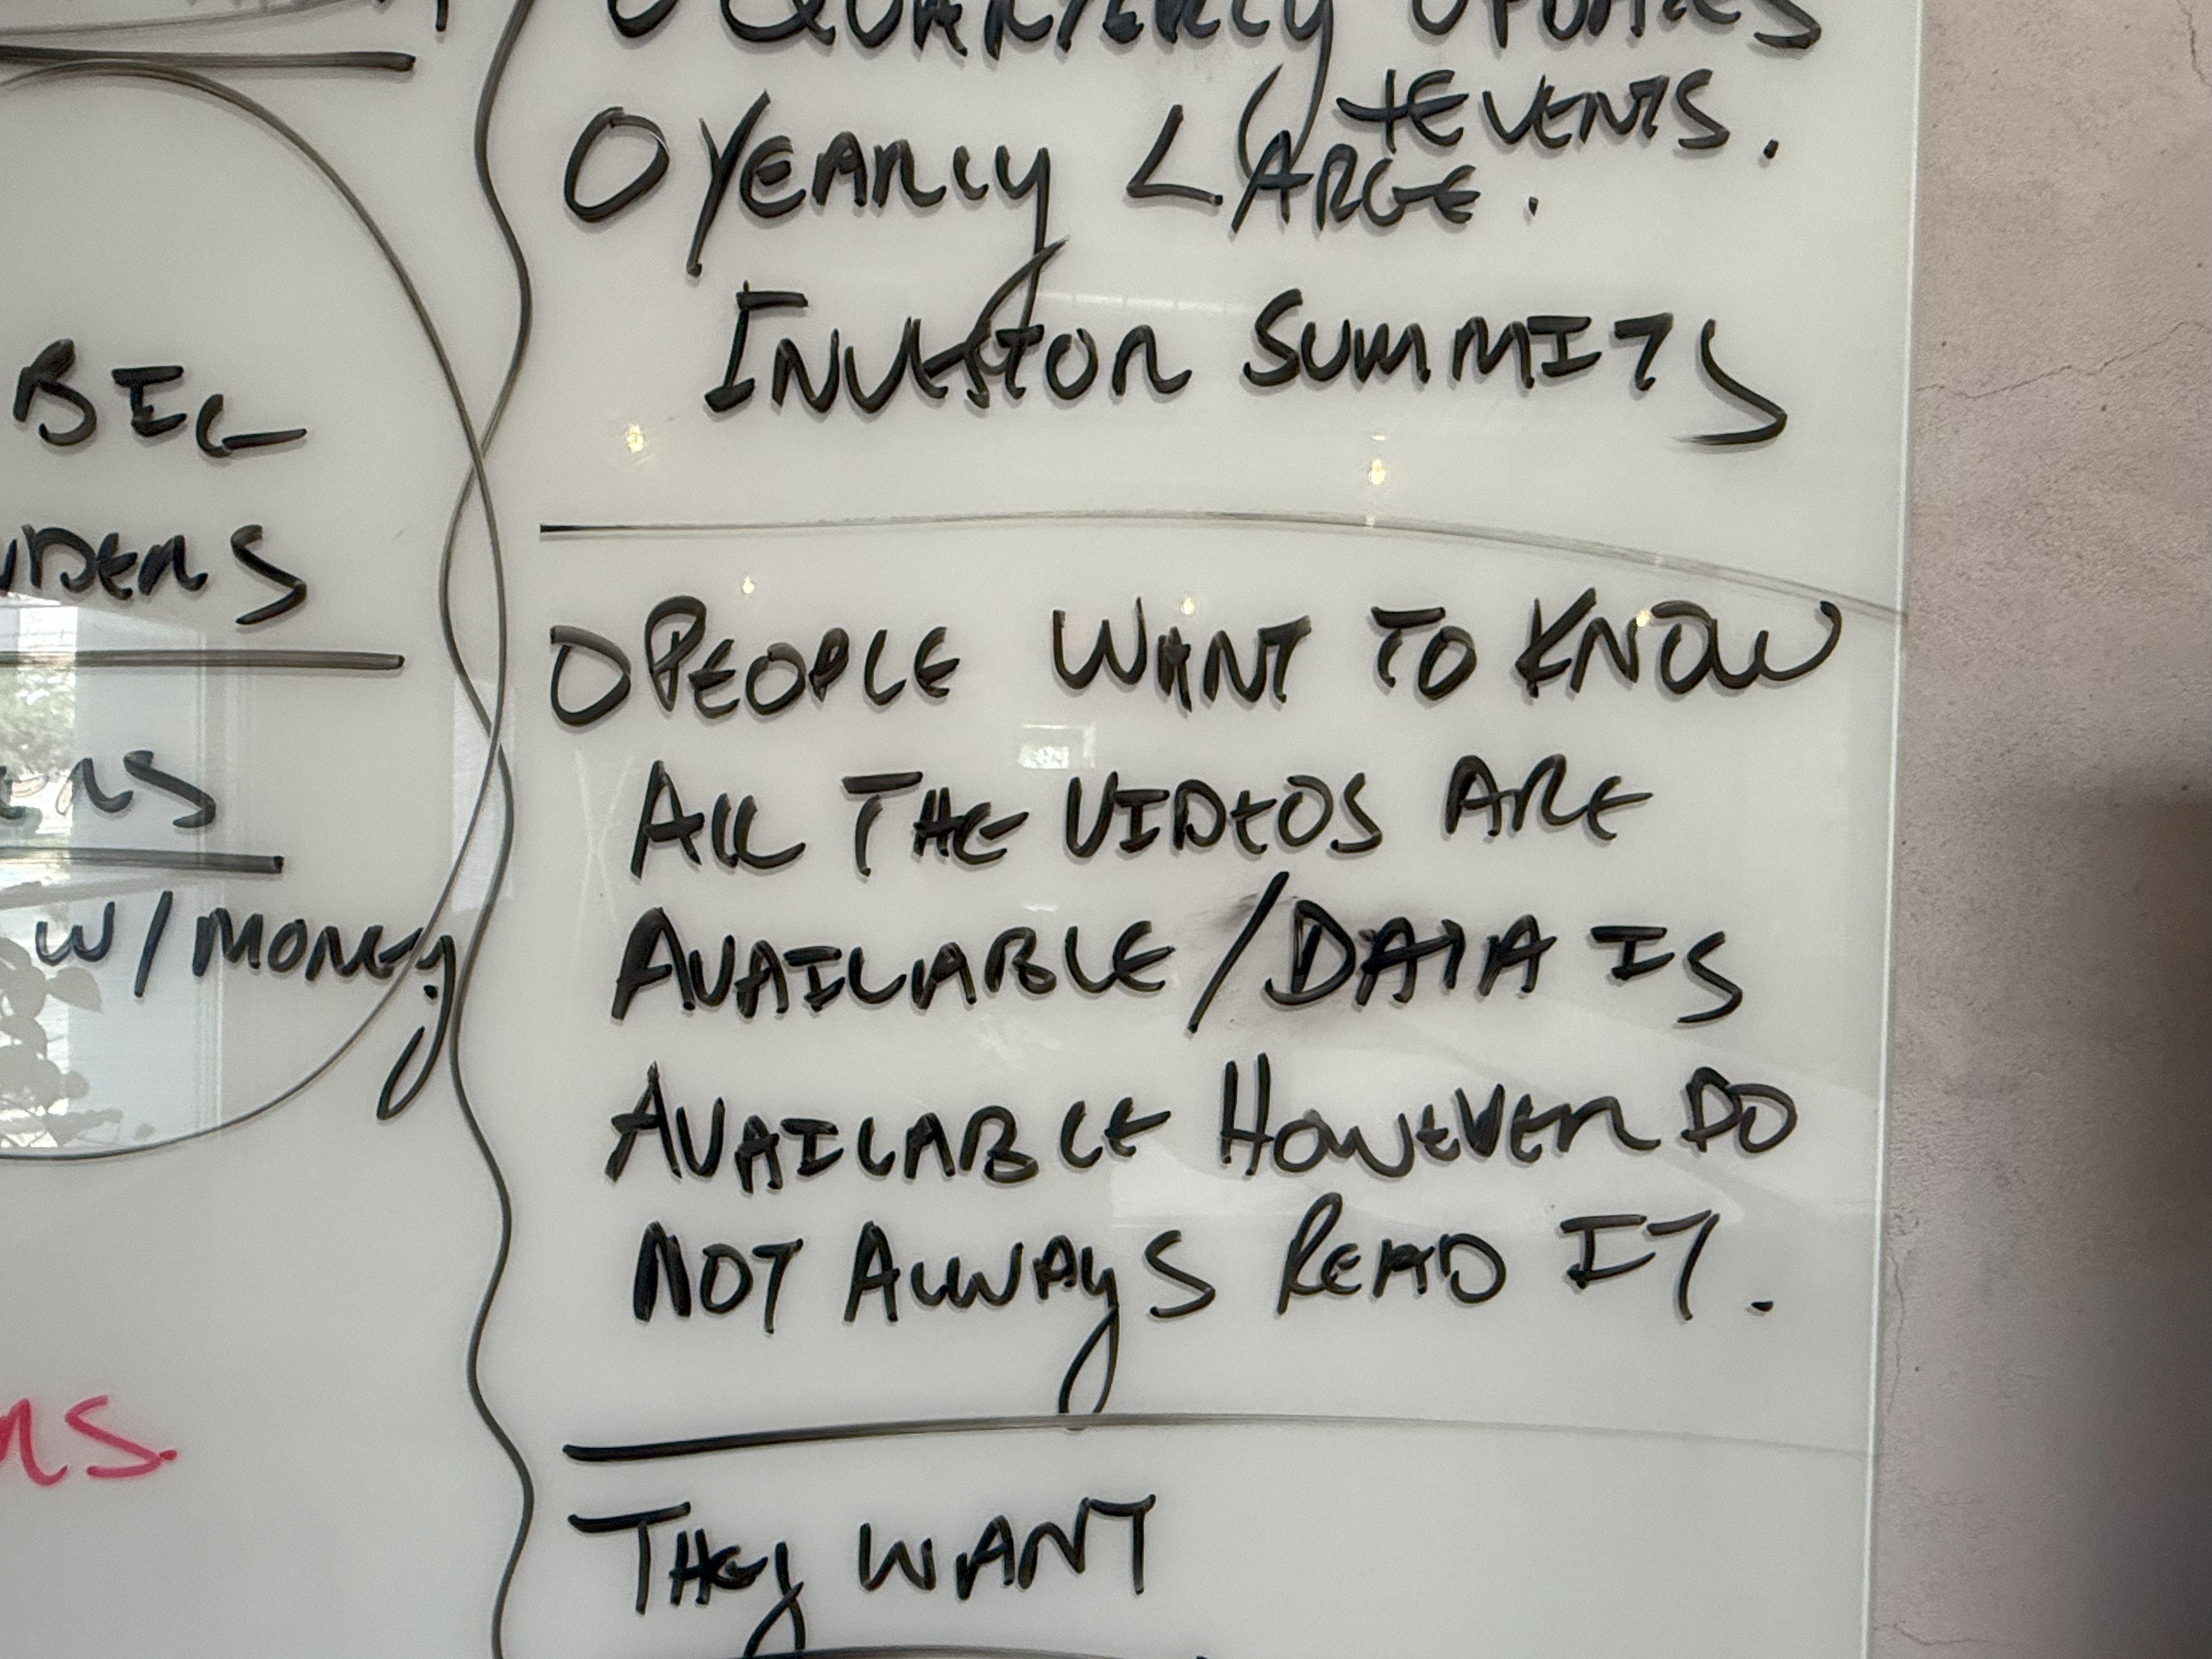 O QUARTERLY UPDATES
+EVENTS.
O YEARLY LARGE.
INVESTOR SUMMITS
O PEOPLE WANT TO KNOW
ALL THE VIDEOS ARE
AVAILABLE/DATA IS
AVAILABLE HOWEVER DO
NOT ALWAYS READ IT.
THEY WANT
BIG
W/MONEY